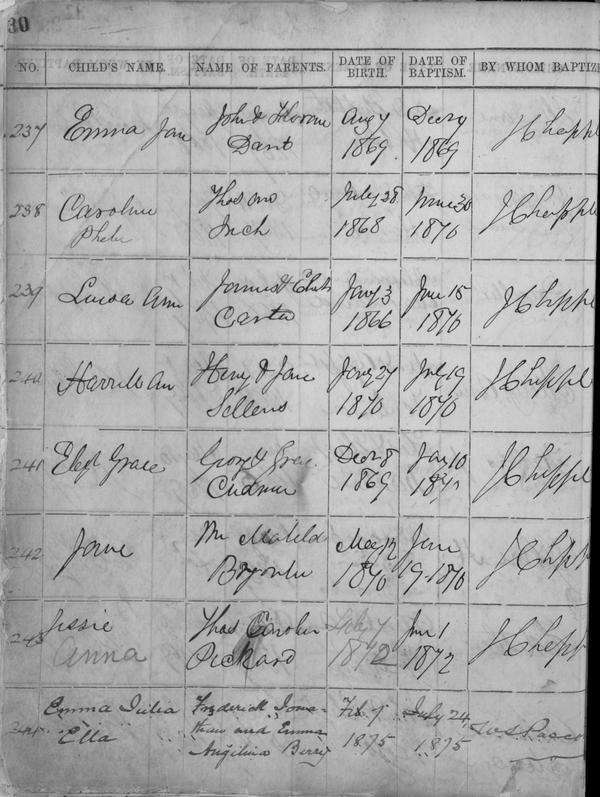 30
NO. CHILD'S NAME. NAME OF PARENTS. DATE OF BIRTH. DATE OF BAPTISM. BY WHOM BAPTIZE
237 Emma Jane John & Dant Aug 4 1869 Decr 9 1869 J Chappl
238 Caroline Phebe Thos and Inch July 28 1868 June 30 1870 J Chappl
239 Louisa Ann James & Elizh Carter Jany 3 1866 June 15 1870 J Chappl
240 Harriet Ann Henry & Jane Sellens Jany 27 1870 July 19 1870 J Chappl
241 Elizh Grace George & Grace Cudmore Decr 8 1869 Jany 10 J Chappl
242 Jane Wm Matilda May 12 1870 June 19-1870 J Chappl
243 Jessie Anna Thos Caroline Pickard July 7 1872 June 1 1872 J Chappl
244 Emma Julia Ella Frederick and Emma Angelina Berry Feb. 7 1875 July 24 1875 W S Pascoe